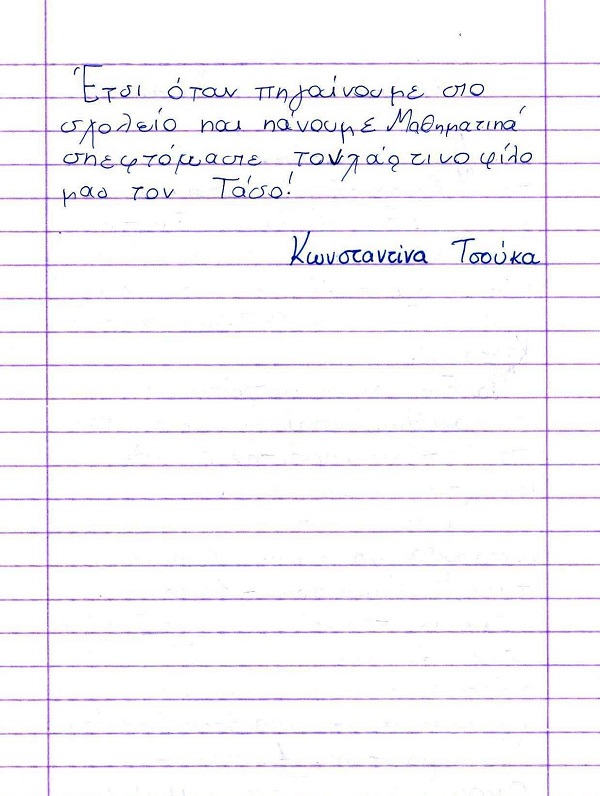 Έτσι όταν πηγαίνουμε στο
σχολείο και κάνουμε Μαθηματικά
σκεφτόμαστε τον χάρτινο φίλο
μας τον Τάσο!
Κωνσταντίνα Τσούκα